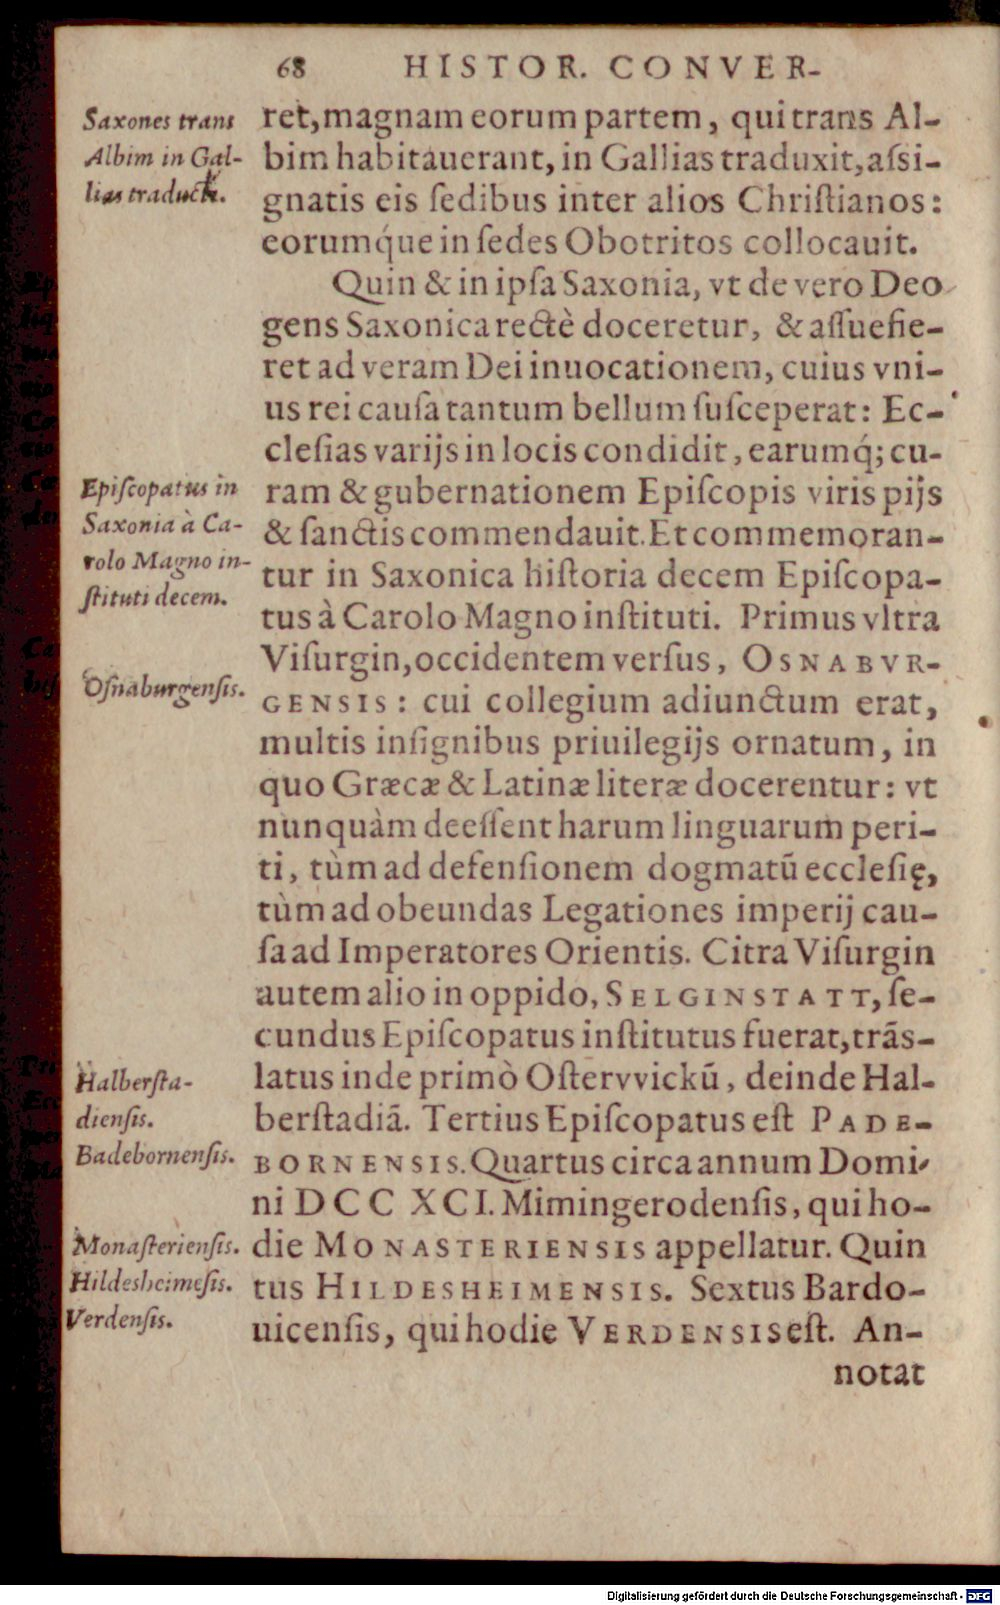 68 HISTOR. CONVER-
Saxones trans
Albim in Gal-
lias traducti.
ret, magnam eorum partem, qui trans Al-
bim habitauerant, in Gallias traduxit, aſsi-
gnatis eis ſedibus inter alios Chriſtianos:
eorumq́ue in ſedes Obotritos collocauit.
Quin & in ipſa Saxonia, vt de vero Deo
gens Saxonica rectè doceretur, & aſſuefie-
ret ad veram Dei inuocationem, cuius vni-
us rei cauſa tantum bellum ſuſceperat: Ec-
cleſias varijs in locis condidit, earumq́; cu-
Epiſcopatus in
Saxonia à Ca-
rolo Magno in-
ſtituti decem.
ram & gubernationem Epiſcopis viris pijs
& ſanctis commendauit. Et commemoran-
tur in Saxonica hiſtoria decem Epiſcopa-
tus à Carolo Magno inſtituti. Primus vltra
Viſurgin, occidentem verſus, OSNABVR-
Oſnaburgenſis.
GENSIS: cui collegium adiunctum erat,
multis inſignibus priuilegijs ornatum, in
quo Græcæ & Latinæ literæ docerentur: vt
nunquàm deeſſent harum linguarum peri-
ti, tùm ad defenſionem dogmatũ eccleſię,
tùm ad obeundas Legationes imperij cau-
ſa ad Imperatores Orientis. Citra Viſurgin
autem alio in oppido, SELGINSTATT, ſe-
cundus Epiſcopatus inſtitutus fuerat, trãs-
Halberſta-
dienſis.
Badebornenſis.
latus inde primò Oſtervvickũ, deinde Hal-
berſtadiã. Tertius Epiſcopatus eſt PADE-
BORNENSIS. Quartus circa annum Domi-
ni DCC XCI. Mimingerodenſis, qui ho-
Monaſterienſis.
Hildesheimēſis.
Verdenſis.
die MONASTERIENSIS appellatur. Quin
tus HILDESHEIMENSIS. Sextus Bardo-
uicenſis, qui hodie VERDENSIS eſt. An-
notat
Digitalisierung gefördert durch die Deutsche Forschungsgemeinschaft - DFG